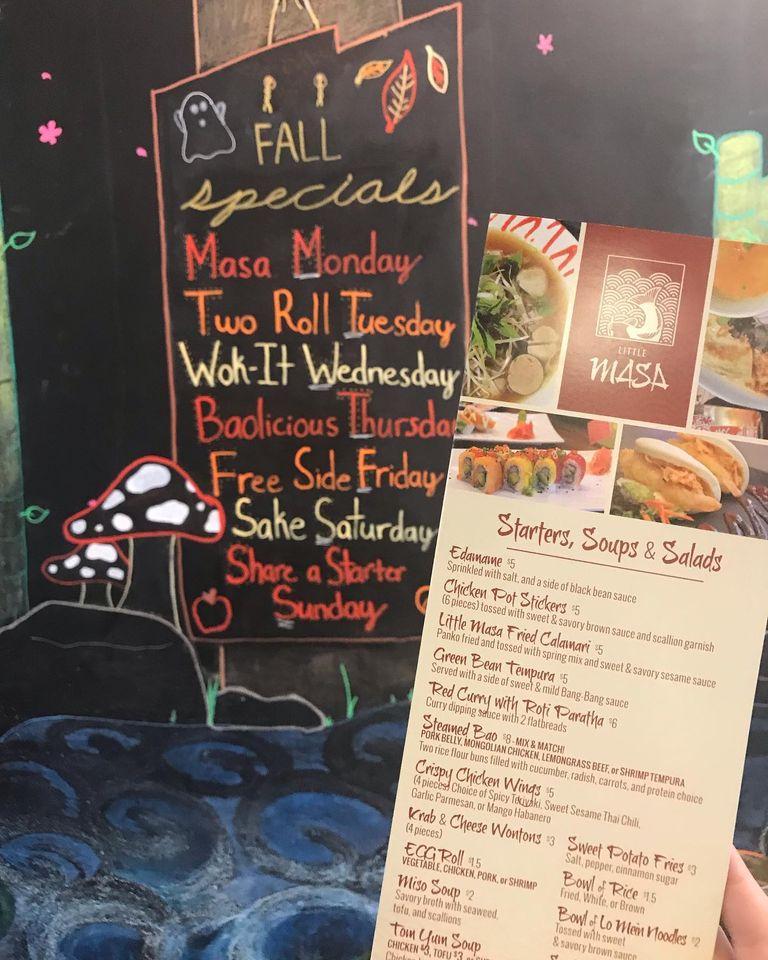 FALL
specials
Masa Monday
Two Roll Tuesday
Wok-It Wednesday
Baolicious Thursda
Free Side Friday
Sake Saturday
Share a Starter
Sunday
LITTLE
MASA
Starters, Soups & Salads
Edamame $5
Sprinkled with salt, and a side of black bean sauce
Chicken Pot Stickers $5
(6 pieces) tossed with sweet & savory brown sauce and scallion garnish
Little Masa Fried Calamari $5
Panko fried and tossed with spring mix and sweet & savory sesame sauce
Green Bean Tempura $5
Served with a side of sweet & mild Bang-Bang sauce
Red Curry with Roti Paratha $6
Curry dipping sauce with 2 flatbreads
Steamed Bao $8 - MIX & MATCH!
PORK BELLY, MONGOLIAN CHICKEN, LEMONGRASS BEEF, or SHRIMP TEMPURA
Two rice flour buns filled with cucumber, radish, carrots, and protein choice
Crispy Chicken Wings $5
(4 pieces) Choice of Spicy Teriyaki, Sweet Sesame Thai Chili,
Garlic Parmesan, or Mango Habanero
Krab & Cheese Wontons $3
(4 pieces)
EGG Roll $1.5
VEGETABLE, CHICKEN, PORK, or SHRIMP
Miso Soup $2
Savory broth with seaweed,
tofu, and scallions
Tom Yum Soup
CHICKEN $3, TOFU $3,
Sweet Potato Fries $3
Salt, pepper, cinnamon sugar
Bowl of Rice $1.5
Fried, White, or Brown
Bowl of Lo Mein Noodles $2
Tossed with sweet
& savory brown sauce